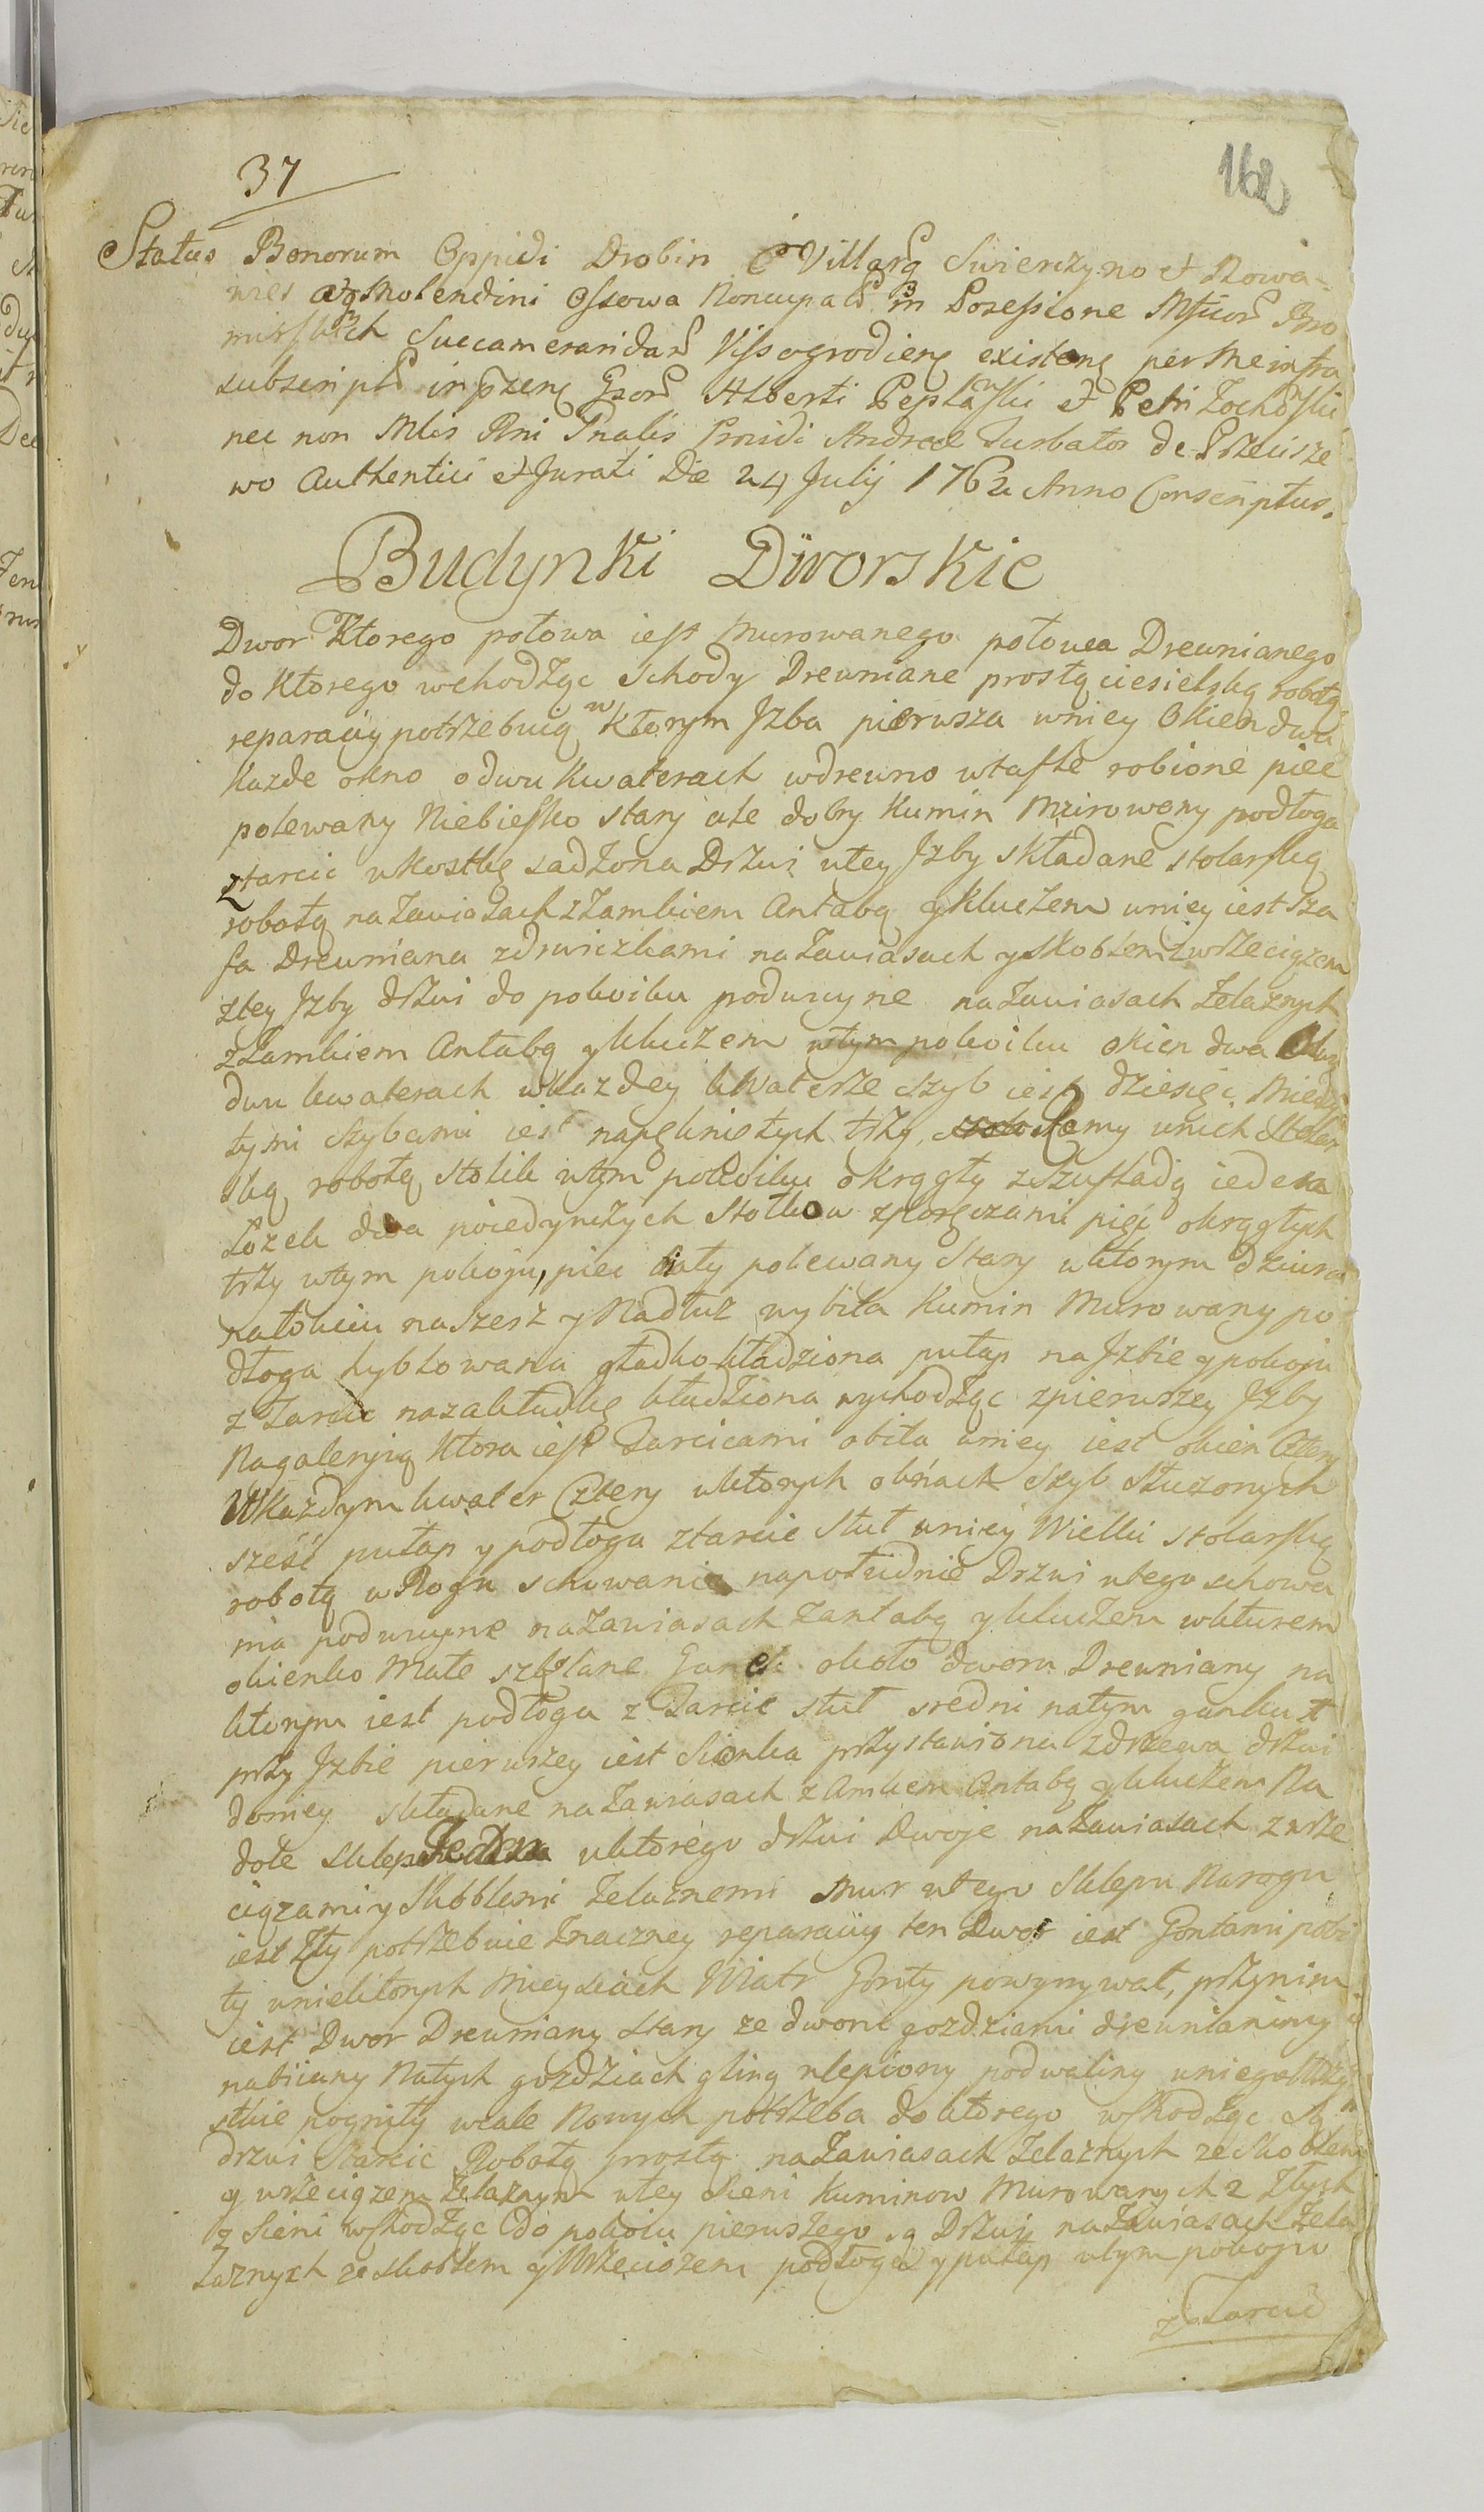 37
162
Status Bonorum Oppidi Drobin & Villarq Swierczyno et Nowa-
wies atq Molendini Ossowa Noncupat in Possessione Mficor Bro
mirskich Succameraridar Vissogrodieng existeng per me infra
subscript in przeng Gsor Alberti Peplański et Petri Zochowski
nec non Mlis Rni Pnalis Andreæ Turbator de Przecisze
wo Authentici et Jurati Die 24 Julij 1762 Anno Conscriptus.
Budynki Dworskie
Dwor Ktorego połowa iest Murowanego połowa Drewnianego
do Ktorego wchodząc Schody Drewniane prostą ciesielską robotą
reparacyi potrzebuią w Ktorym Jzba pierwsza wniey Okien dwa
Kazde okno o dwu Kwaterach wdrewno wtafle robione piec
polewany Niebiesko stary ale dobry Kumin Murowany podłoga
ztarcic wkostkę sadzona Drzwi wtey Jzby składane stolarską
robotą na Zawiasach z Zamkiem Antabą y Kluczem wniey iest sza
fa Drewniana zdrwiczkami na Zawiasach y skoblem zwrzeciązem
ztey Jzby drzwi do pokoiku poduoyne na Zawiasach Zelaznych
z Zamkiem Antabą y Kluczem wtym pokoiku okien dwa
dwu kwaterach wkazdey kwaterze szyb iest dziesięc Miedzy
tymi szybami iest napęknietych trzy, ramy unich Stolar
ską robotą, stolik wtym pokoiku okrągły zszufladą ieden
Łozek dwa poiedynczych Stołkow zporęczami pięć okrągłych
trzy wtym pokoju, piec biały polewany Stary wktorym dziura
nałokciu naszesz y Nadłuz wybita Kumin Murowany po
dłoga hyblowana gładko kładziona pułap na Jzbie y pokoju
z Tarcic nazakładkę kładziona wychodząc zpierwszey Jzby
Nagaleryią Ktora iest Tarcicami obita wniey iest okien Cztery
Wkazdym kwater Cztery wktorych oknach szyb stłuczonych
sześć pułap y podłoga ztarcic Stuł wniey Wielki stolarską
robotą wRogu schowanie napołudnie Drzwi utego schowa
nia poduoyne na Zawiasach zantabą y kluczem wkturem
okienko Małe szklane Ganek około dworu Drewniany na
ktorym iest podłoga z Tarcic stuł sredni natym ganku
przy Jzbie pierwszey iest Sionka przystawiona zdrzewa drzwi
doniey składane na Zawiasach zamkiem Antabą y kluczem Na
dole sklep Jeden wktorego drzwi Dwoje na Zawiasach zwrze
ciązami y Skoblami Zelaznemi Mur utego Sklepu Narogu
iest Zły potrzebuie Znaczney reparacyi ten Dwor iest Gontami pobi
ty wniektorych Mieyscach Wiatr Gonty powyrywał, przynim
iest Dwor Drewniany stary ze dwora gozdziami drewnianimy
nabiiany Natych gozdziach gliną ulepiony podwaliny uniego Wszy
stkie pogniły wcale Nowych potrzeba do ktorego wchodząc są
drzwi ztarcic Robotą prostą na Zawiasach Zelaznych ze Skoblem
y wrzeciązem Zelaznym wtey Sieni Kuminow Murowanych 2 Złych
z Sieni wchodząc do pokoiu pierwszego są Drzwi na Zawiasach Zela
Zaznych ze skoblem y Wrzeciązem podłoga y pułap wtym pokoju
z Tarcic